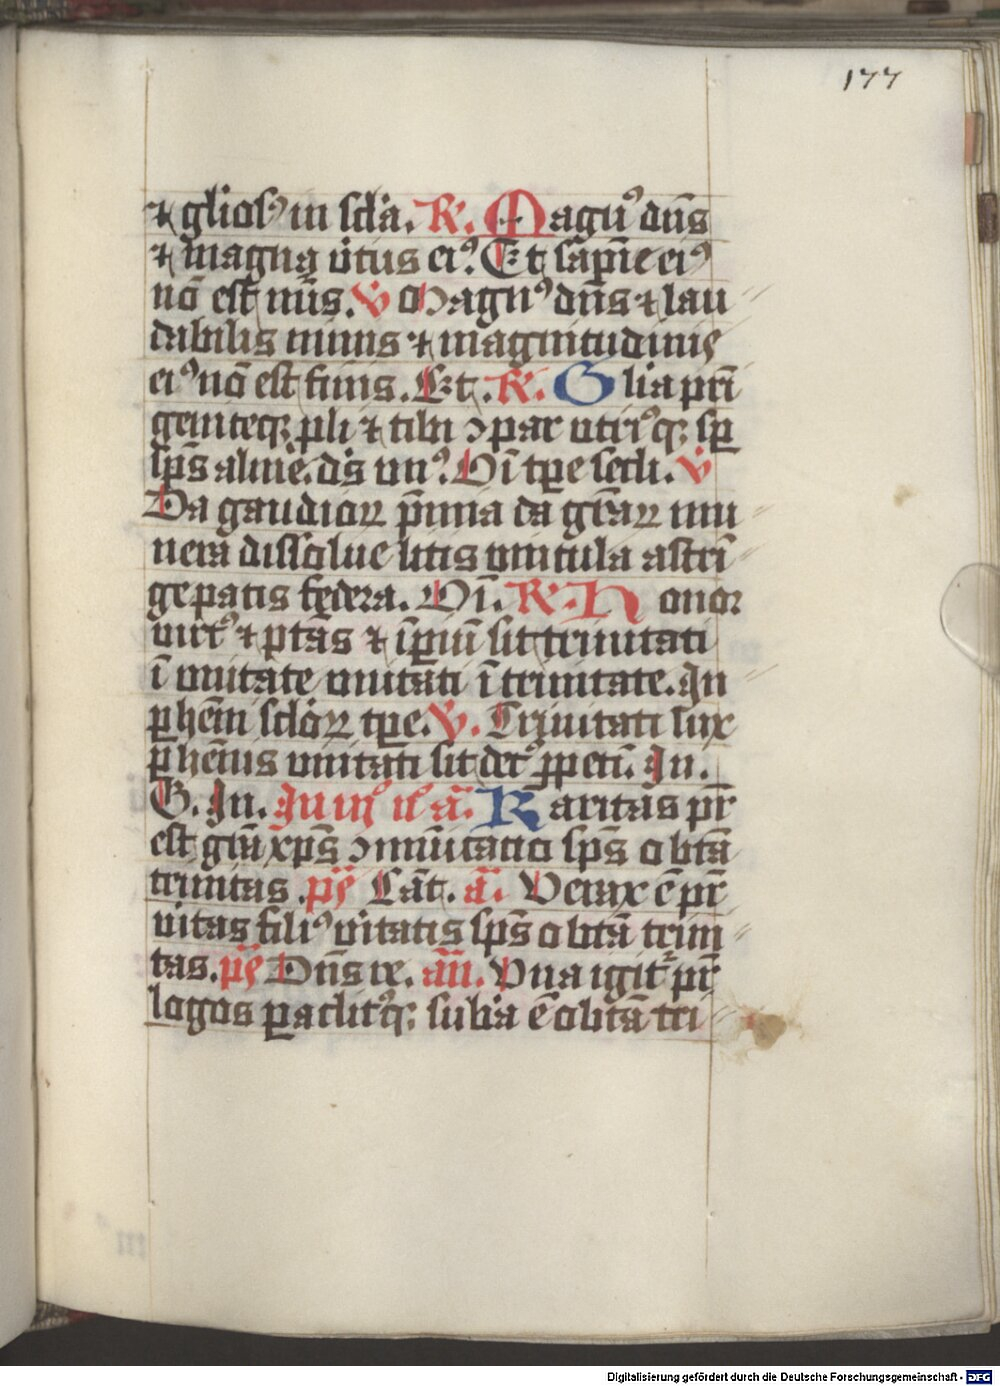 177
⁊ gl̅iosꝰ in scl̅a. R. Magnꝰ dn̅s
⁊ magna v̅tus eiꝰ. Et sapīe eiꝰ
nō est nu̅s. V Magnꝰ dn̅s ⁊ lau
dabilis nimis ⁊ magnitudinis
eiꝰ nō est finis. Et. R. Glīa pr̅i
geniteqꝫ pli ⁊ tibi ↄpar utrꝰqꝫ sp̅
sp̅s alme. ds̅ vnꝰ. Oī tp̅e secli. V
Da gaudioꝝ p̅mia da gr̅aꝝ mu
nera dissolue litis vincula astrī
ge pacis federa. Oī. R. Honor
virtꝰ ⁊ ptās ⁊ īꝑiū sit trinitati
ī vnitate vnitati ī trinitate. In
ꝑhem̄ scl̅oꝝ tp̅e. V. Trinitati lux
ꝑhēnis vnitati sit decꝰ ꝑpetī. In.
G. In. In iiꝰ n̅ a̅. Karitas pr̅
est gr̅a xp̅s ↄmūicatio sp̅s o btā
trinitas. ps̅ Cāt. a̅. Verax ē pr̅
vitas filiꝰ v̅itatis sp̅s o btā trini
tas. ps̅ Dn̅s re. an̅. Vna igit̅ pr̅
logos ꝑaclitꝰqꝫ sub̅a ē o btā tri
Digitalisierung gefördert durch die Deutsche Forschungsgemeinschaft - DFG